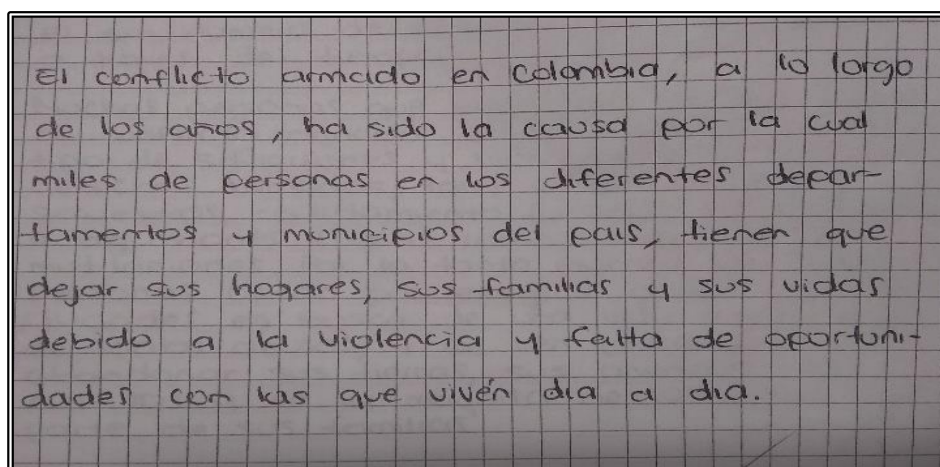 El conflicto armado en Colombia, a lo largo
de los años, ha sido la causa por la cual
miles de personas en los diferentes depar-
tamentos y municipios del pais, tienen que
dejar sus hogares, sus familias y sus vidas
debido a la violencia y falta de oportuni-
dades con las que viven dia a dia.